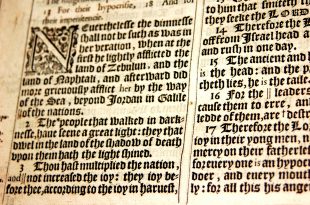 18 For their hypocrisie, 18 And for
their impenitencie.
Neuerthelesse the dimnesse
shall not be such as was in
her veration, when at the
first he lightly afflicted the
land of Zebulun, and the
land of Naphtali, and afterward did
more grieuously afflict her by the way
of the Sea, beyond Jordan in Galile
of the nations.
2 The people that walked in dark-
nesse, haue seene a great light: they that
dwell in the land of the shadow of death
vpon them hath the light shined.
3 Thou hast multiplied the nation,
and not increased the ioy: they ioy be-
fore thee, according to the ioy in haruest,
of him that smiteth th
they seeke the LORD
14 Therefore the L
off from Israel head a
and rush in one day.
15 The ancient and
is the head: and the p
cheth lies, he is the taile.
16 For the leaders
cause them to erre, and
ledde of them, are destr
17 Therefore the Lo
ioy in their yong men, n
mercy on their fatherle
for euery one is an hypocr
doer, and euery mouth
ly: for all this his anger